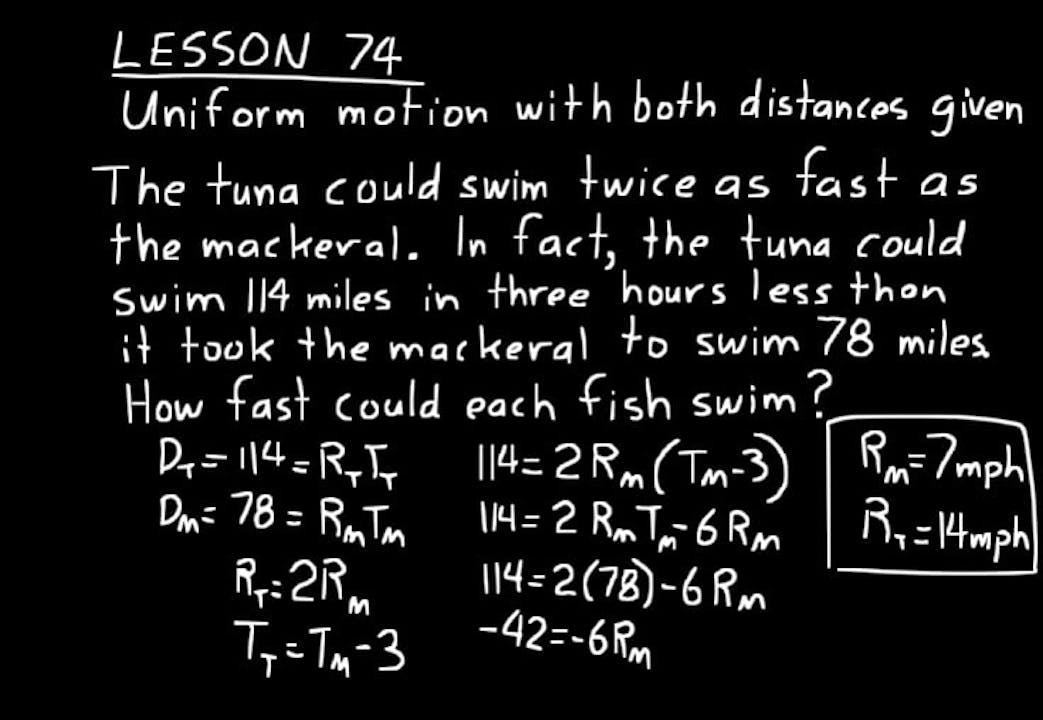 LESSON 74
Uniform motion with both distances given
The tuna could swim twice as fast as
the mackeral. In fact, the tuna could
swim 114 miles in three hours less than
it took the mackeral to swim 78 miles
How fast could each fish swim?
D_T = 114 = R_T T_T
D_M = 78 = R_M T_M
R_T = 2R_M
T_T = T_M - 3
114 = 2 R_M (T_M - 3)
114 = 2 R_M T_M - 6 R_M
114 = 2(78) - 6 R_M
-42 = -6 R_M
R_M = 7mph
R_T = 14mph